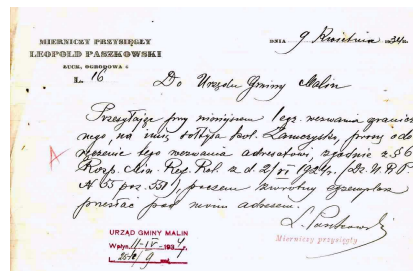 MIERNICZY PRZYSIĘGŁY
LEOPOLD PASZKOWSKI
ŁUCK, OGRODOWA 4
L. 16
DNIA 9 Kwietnia 1934
Do Urzędu Gminy Malin
Przesyłając przy niniejszem 1 egz. wezwania granicz-
nego, na imię sołtysa kol. Zamczysko, proszę o do-
ręczenie tego wezwania adresatowi, zgodnie z § 6
Rozp. Min. Ref. Rol. z d. 2/VI 1927 r. (Dz. U. R. P.
№ 55 poz. 551), poczem zwrotny egzemplarz
przesłać pod moim adresem.
L. Paszkowski
Mierniczy przysięgły
URZĄD GMINY MALIN
Wpłyn. 11-IV-1934
L. 9